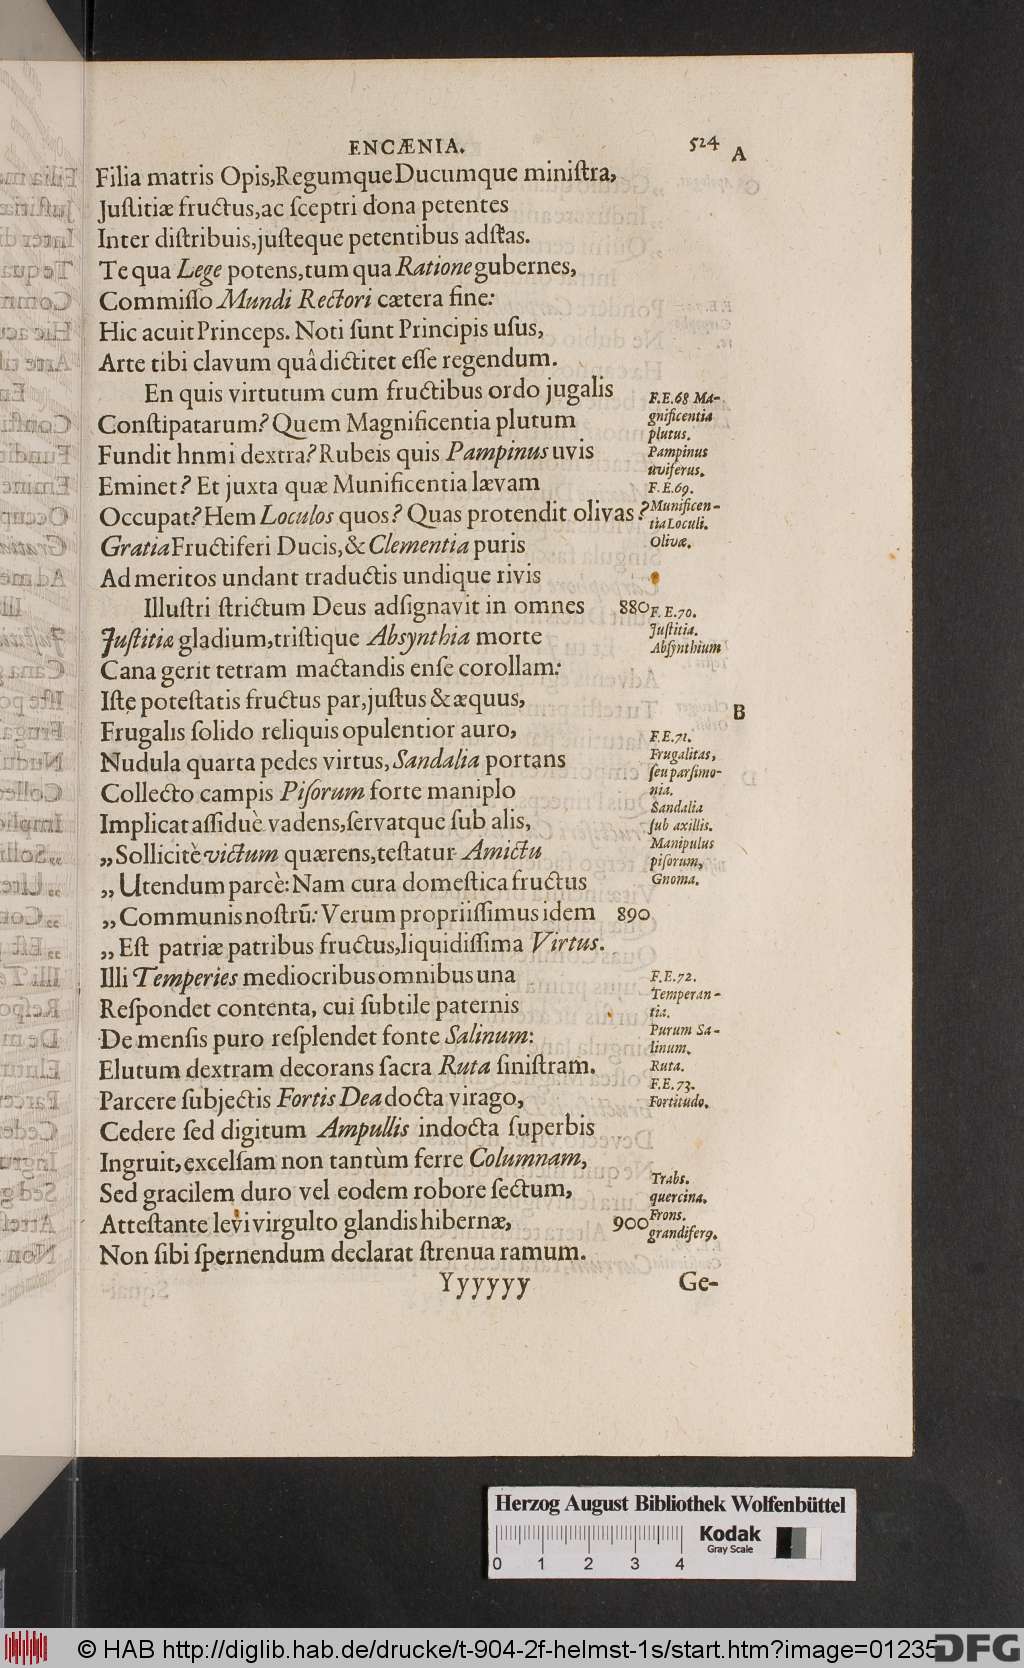 ENCÆNIA. 524 A
Filia matris Opis,Regumque Ducumque miniſtra,
Juſtitiæ fructus,ac ſceptri dona petentes
Inter diſtribuis,juſteque petentibus adſtas.
Te qua Lege potens,tum qua Ratione gubernes,
Commiſſo Mundi Rectori cætera ſine:
Hic acuit Princeps. Noti ſunt Principis uſus,
Arte tibi clavum quâ dictitet eſſe regendum.
En quis virtutum cum fructibus ordo jugalis
Conſtipatarum? Quem Magnificentia plutum
Fundit hnmi dextra? Rubeis quis Pampinus uvis
Eminet? Et juxta quæ Munificentia lævam
Occupat? Hem Loculos quos? Quas protendit olivas?
Gratia Fructiferi Ducis,& Clementia puris
Ad meritos undant traductis undique rivis
Illuſtri ſtrictum Deus adſignavit in omnes 880
Juſtitiæ gladium,triſtique Abſynthia morte
Cana gerit tetram mactandis enſe corollam:
Iſte poteſtatis fructus par,juſtus & æquus,
Frugalis ſolido reliquis opulentior auro,
Nudula quarta pedes virtus, Sandalia portans
Collecto campis Piſorum forte maniplo
Implicat aſſiduè vadens,ſervatque ſub alis,
„Sollicitè victum quærens,teſtatur Amictu
„Utendum parcè: Nam cura domeſtica fructus
„Communis noſtrū: Verum propriiſſimus idem 890
„Eſt patriæ patribus fructus,liquidiſſima Virtus.
Illi Temperies mediocribus omnibus una
Reſpondet contenta, cui ſubtile paternis
De menſis puro reſplendet fonte Salinum:
Elutum dextram decorans ſacra Ruta ſiniſtram.
Parcere ſubjectis Fortis Dea docta virago,
Cedere ſed digitum Ampullis indocta ſuperbis
Ingruit,excelſam non tantùm ferre Columnam,
Sed gracilem duro vel eodem robore ſectum,
Atteſtante levi virgulto glandis hibernæ, 900
Non ſibi ſpernendum declarat ſtrenua ramum.
Yyyyyy Ge-
F.E.68 Ma-
gnificentia
plutus.
Pampinus
uviferus.
F.E.69.
Munificen-
tia Loculi.
Olivæ.
F.E.70.
Juſtitia.
Abſynthium
B
F.E.71.
Frugalitas,
ſeu parſimo-
nia.
Sandalia
ſub axillis.
Manipulus
piſorum,
Gnoma.
F.E.72.
Temperan-
tia.
Purum Sa-
linum.
Ruta.
F.E.73.
Fortitudo.
Trabs.
quercina.
Frons.
grandiferꝰ.
Herzog August Bibliothek Wolfenbüttel
0 1 2 3 4
Kodak
Gray Scale
© HAB http://diglib.hab.de/drucke/t-904-2f-helmst-1s/start.htm?image=01235
DFG